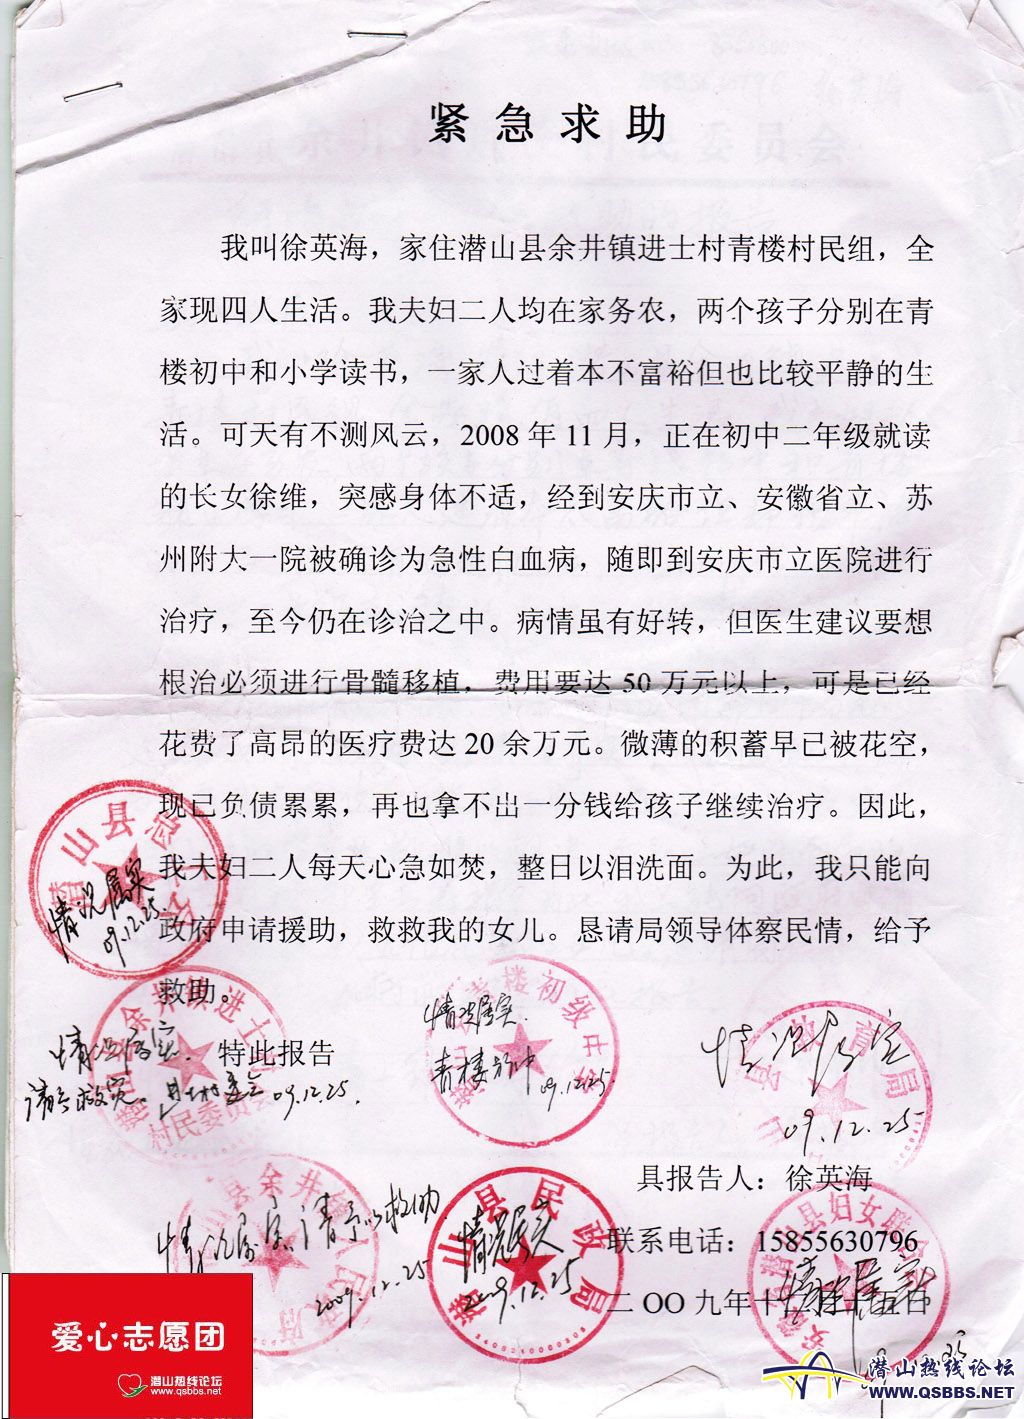 紧急求助
我叫徐英海，家住潜山县余井镇进士村青楼村民组，全
家现四人生活。我夫妇二人均在家务农，两个孩子分别在青
楼初中和小学读书，一家人过着本不富裕但也比较平静的生
活。可天有不测风云，2008年11月，正在初中二年级就读
的长女徐维，突感身体不适，经到安庆市立、安徽省立、苏
州附大一院被确诊为急性白血病，随即到安庆市立医院进行
治疗，至今仍在诊治之中。病情虽有好转，但医生建议要想
根治必须进行骨髓移植，费用要达50万元以上，可是已经
花费了高昂的医疗费达20余万元。微薄的积蓄早已被花空，
现已负债累累，再也拿不出一分钱给孩子继续治疗。因此，
我夫妇二人每天心急如焚，整日以泪洗面。为此，我只能向
政府申请援助，救救我的女儿。恳请局领导体察民情，给予
救助。
特此报告
潜山县总工会
情况属实
09.12.25.
余井镇进士村
村民委员会
情况属实.
09.12.25.
青楼初级中学
情况属实.
青楼初中
09.12.25.
情况属实
09.12.25
县余井镇人民政府
情况属实,请予以救助
2009.12.25
潜山县民政局
情况属实
2009.12.25
具报告人：徐英海
联系电话：15855630796
二OO九年十二月二十五日
潜山县妇女联合会
情况属实
爱心志愿团
潜山热线论坛
www.qsbbs.net
潜山热线论坛
WWW.QSBBS.NET